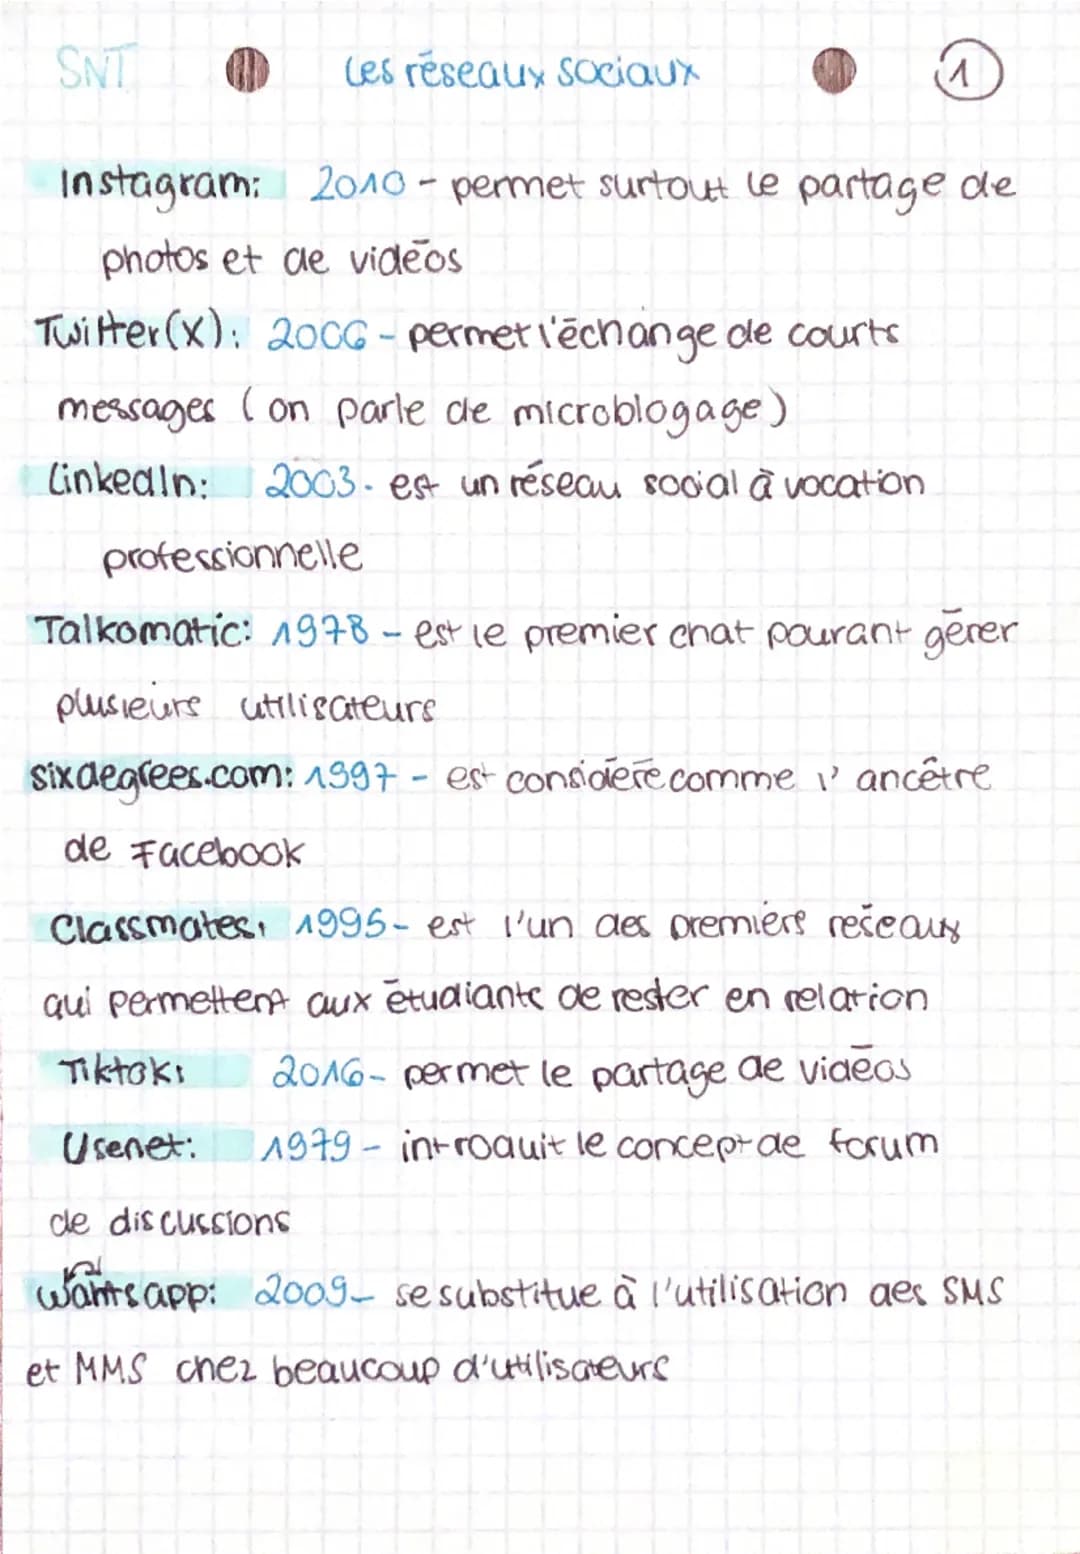 SNT les réseaux sociaux 1
Instagram: 2010 - permet surtout le partage de
photos et de vidéos
Twitter(X): 2006 - permet l'échange de courts
messages (on parle de microblogage)
LinkedIn: 2003 - est un réseau social à vocation
professionnelle
Talkomatic: 1978 - est le premier chat pouvant gérer
plusieurs utilisateurs
sixdegrees.com: 1997 - est considéré comme l'ancêtre
de Facebook
Classmates: 1995 - est l'un des premiers réseaux
qui permettent aux étudiants de rester en relation
Tiktok: 2016 - permet le partage de vidéos
Usenet: 1979 - introduit le concept de forum
de discussions
Whatsapp: 2009 - se substitue à l'utilisation des SMS
et MMS chez beaucoup d'utilisateurs